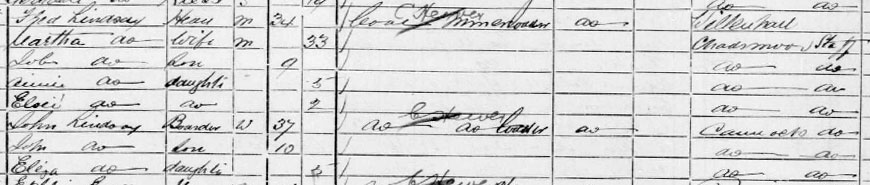 Fred Lindsay Head M 34 Coal Miner Loader do Willenhall
Martha do Wife M 33 Chadsmoor Staff
John do Son 9 do do
Annie do daughter 5 do do
Elsie do do 2 do do
John Lindsay Boarder W 37 do do Loader do Cannock do
John do Son 10 do do
Eliza do daughter 5 do do